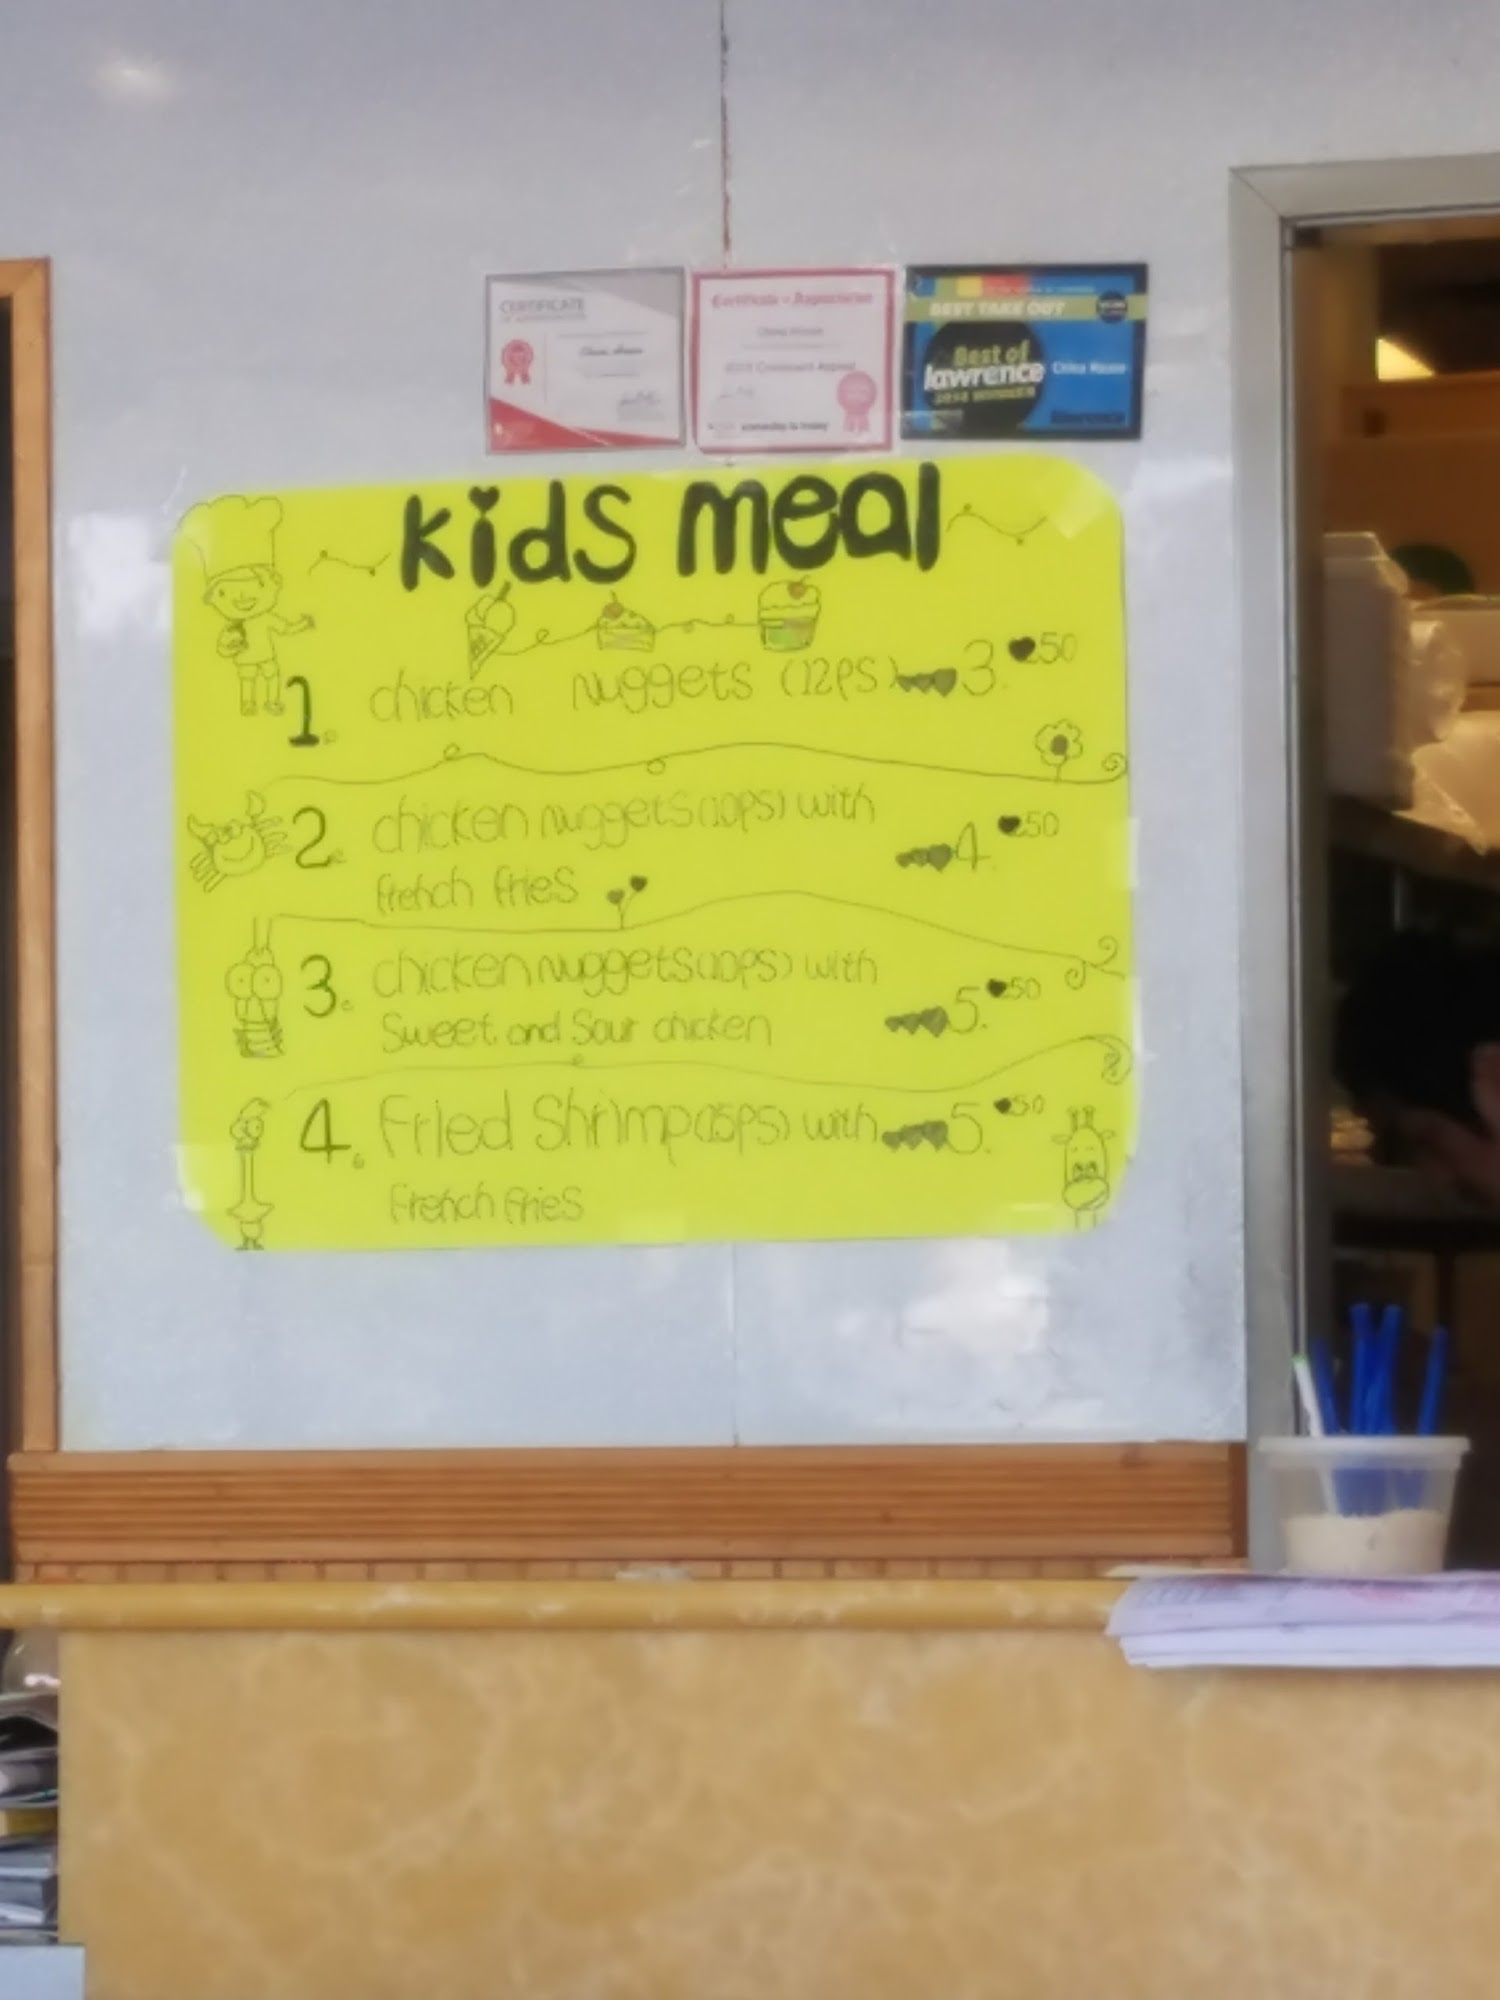 CERTIFICATE
Certificate of Appreciation
China House
BEST TAKE OUT
Best of
lawrence
China House
WINNER
kids meal
1. chicken nuggets (12PS) 3.50
2. chicken nuggets (10PS) with
4.50
french fries
3. chicken nuggets (10PS) with
5.50
Sweet and Sour chicken
4. Fried Shrimp (15PS) with 5.50
French fries